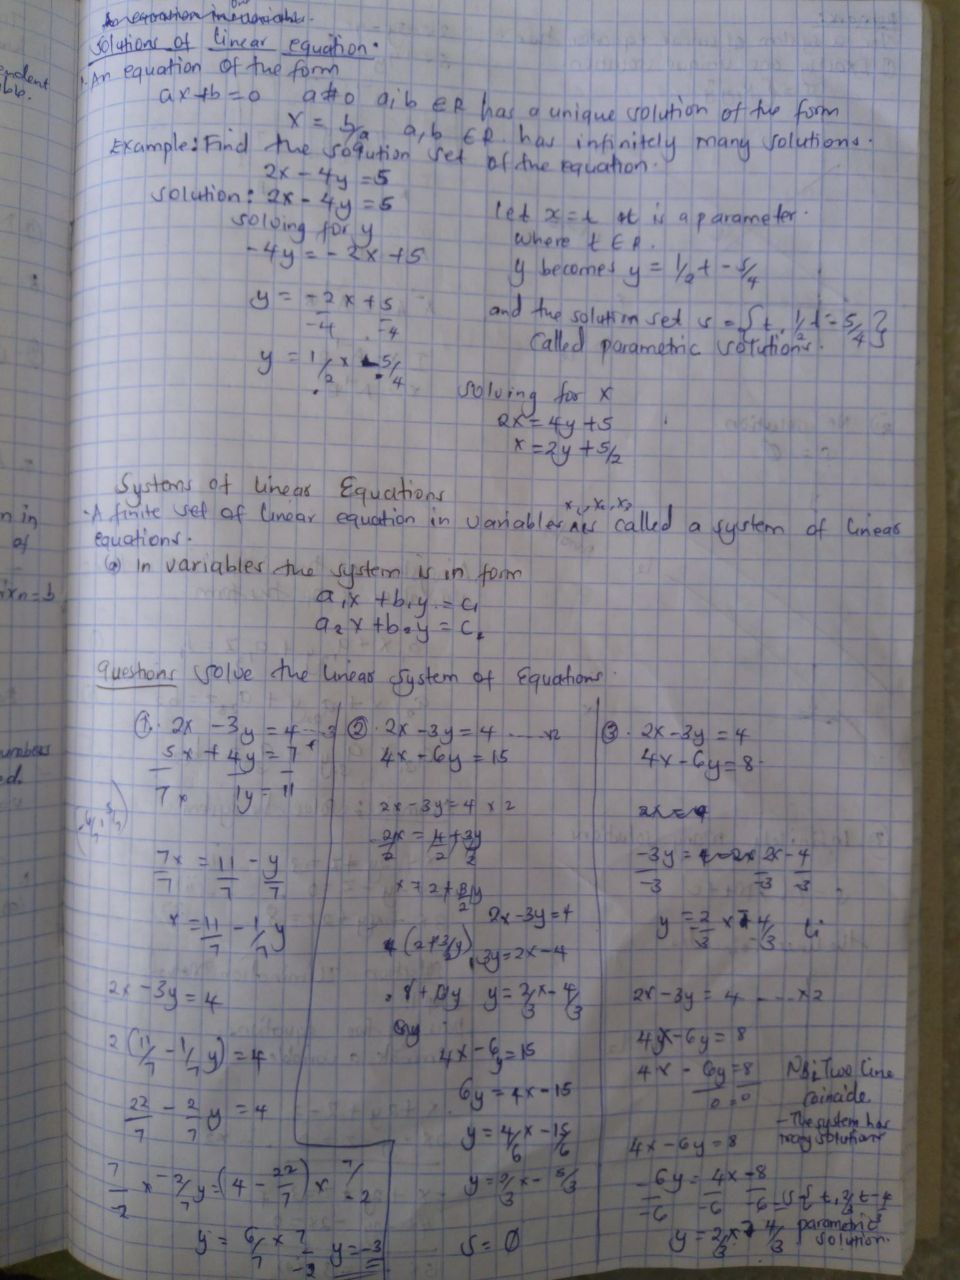 Solutions of linear equation.
An equation of the form
ax+b=0 a≠0 a,b ∈R has a unique solution of the form
x = b/a a,b ∈R has infinitely many solutions.
Example: Find the solution set of the equation.
2x - 4y = 5
solution: 2x - 4y = 5
solving for y
-4y = -2x + 5
y = -2x/-4 + 5/-4
y = 1/2 x - 5/4
Let x = t t is a parameter.
where t ∈ R.
y becomes y = 1/2 t - 5/4
and the solution set is = {t, 1/2 t - 5/4}
called parametric solutions.
solving for x
2x = 4y + 5
x = 2y + 5/2
Systems of Linear Equations
- A finite set of linear equation in variables x₁, x₂, x₃ is called a system of linear
equations.
(a) In variables the system is in form
a₁x + b₁y = c₁
a₂x + b₂y = c₂
Questions solve the linear system of Equations.
①. 2x - 3y = 4
5x + 4y = 7
7x 1y = 11
7x/7 = 11/7 - y/7
x = 11/7 - 1/7 y
2x - 3y = 4
2(11/7 - 1/7 y) = 4
22/7 - 2/7 y = 4
7/-2 x -2/7 y = (4 - 22/7) x 7/-2
y = 6/7 x 7/-2 y = -3
②. 2x - 3y = 4 ..... x2
4x - 6y = 15
2x - 3y = 4 x 2
2x/2 = 4/2 + 3y/2
x = 2 + 3/2 y
2x - 3y = 4
4(2 + 3/2 y) 3y = 2x - 4
8 + 12y y = 2/3 x - 4/3
4x - 6y = 15
6y = 4x - 15
y = 4/6 x - 15/6
y = 2/3 x - 5/3
S = Ø
③. 2x - 3y = 4
4x - 6y = 8
-3y/-3 = 2x/-3 - 4/-3
y = 2/3 x - 4/3
2x - 3y = 4 .... x2
4x - 6y = 8
4x - 6y = 8
0 = 0
NB: Two Line
coincide.
- The system has
many solutions
4x - 6y = 8
-6y/-6 = 4x/-6 - 8/-6
y = 2/3 x - 4/3
S = {t, 2/3 t - 4/3
parametric
solution.